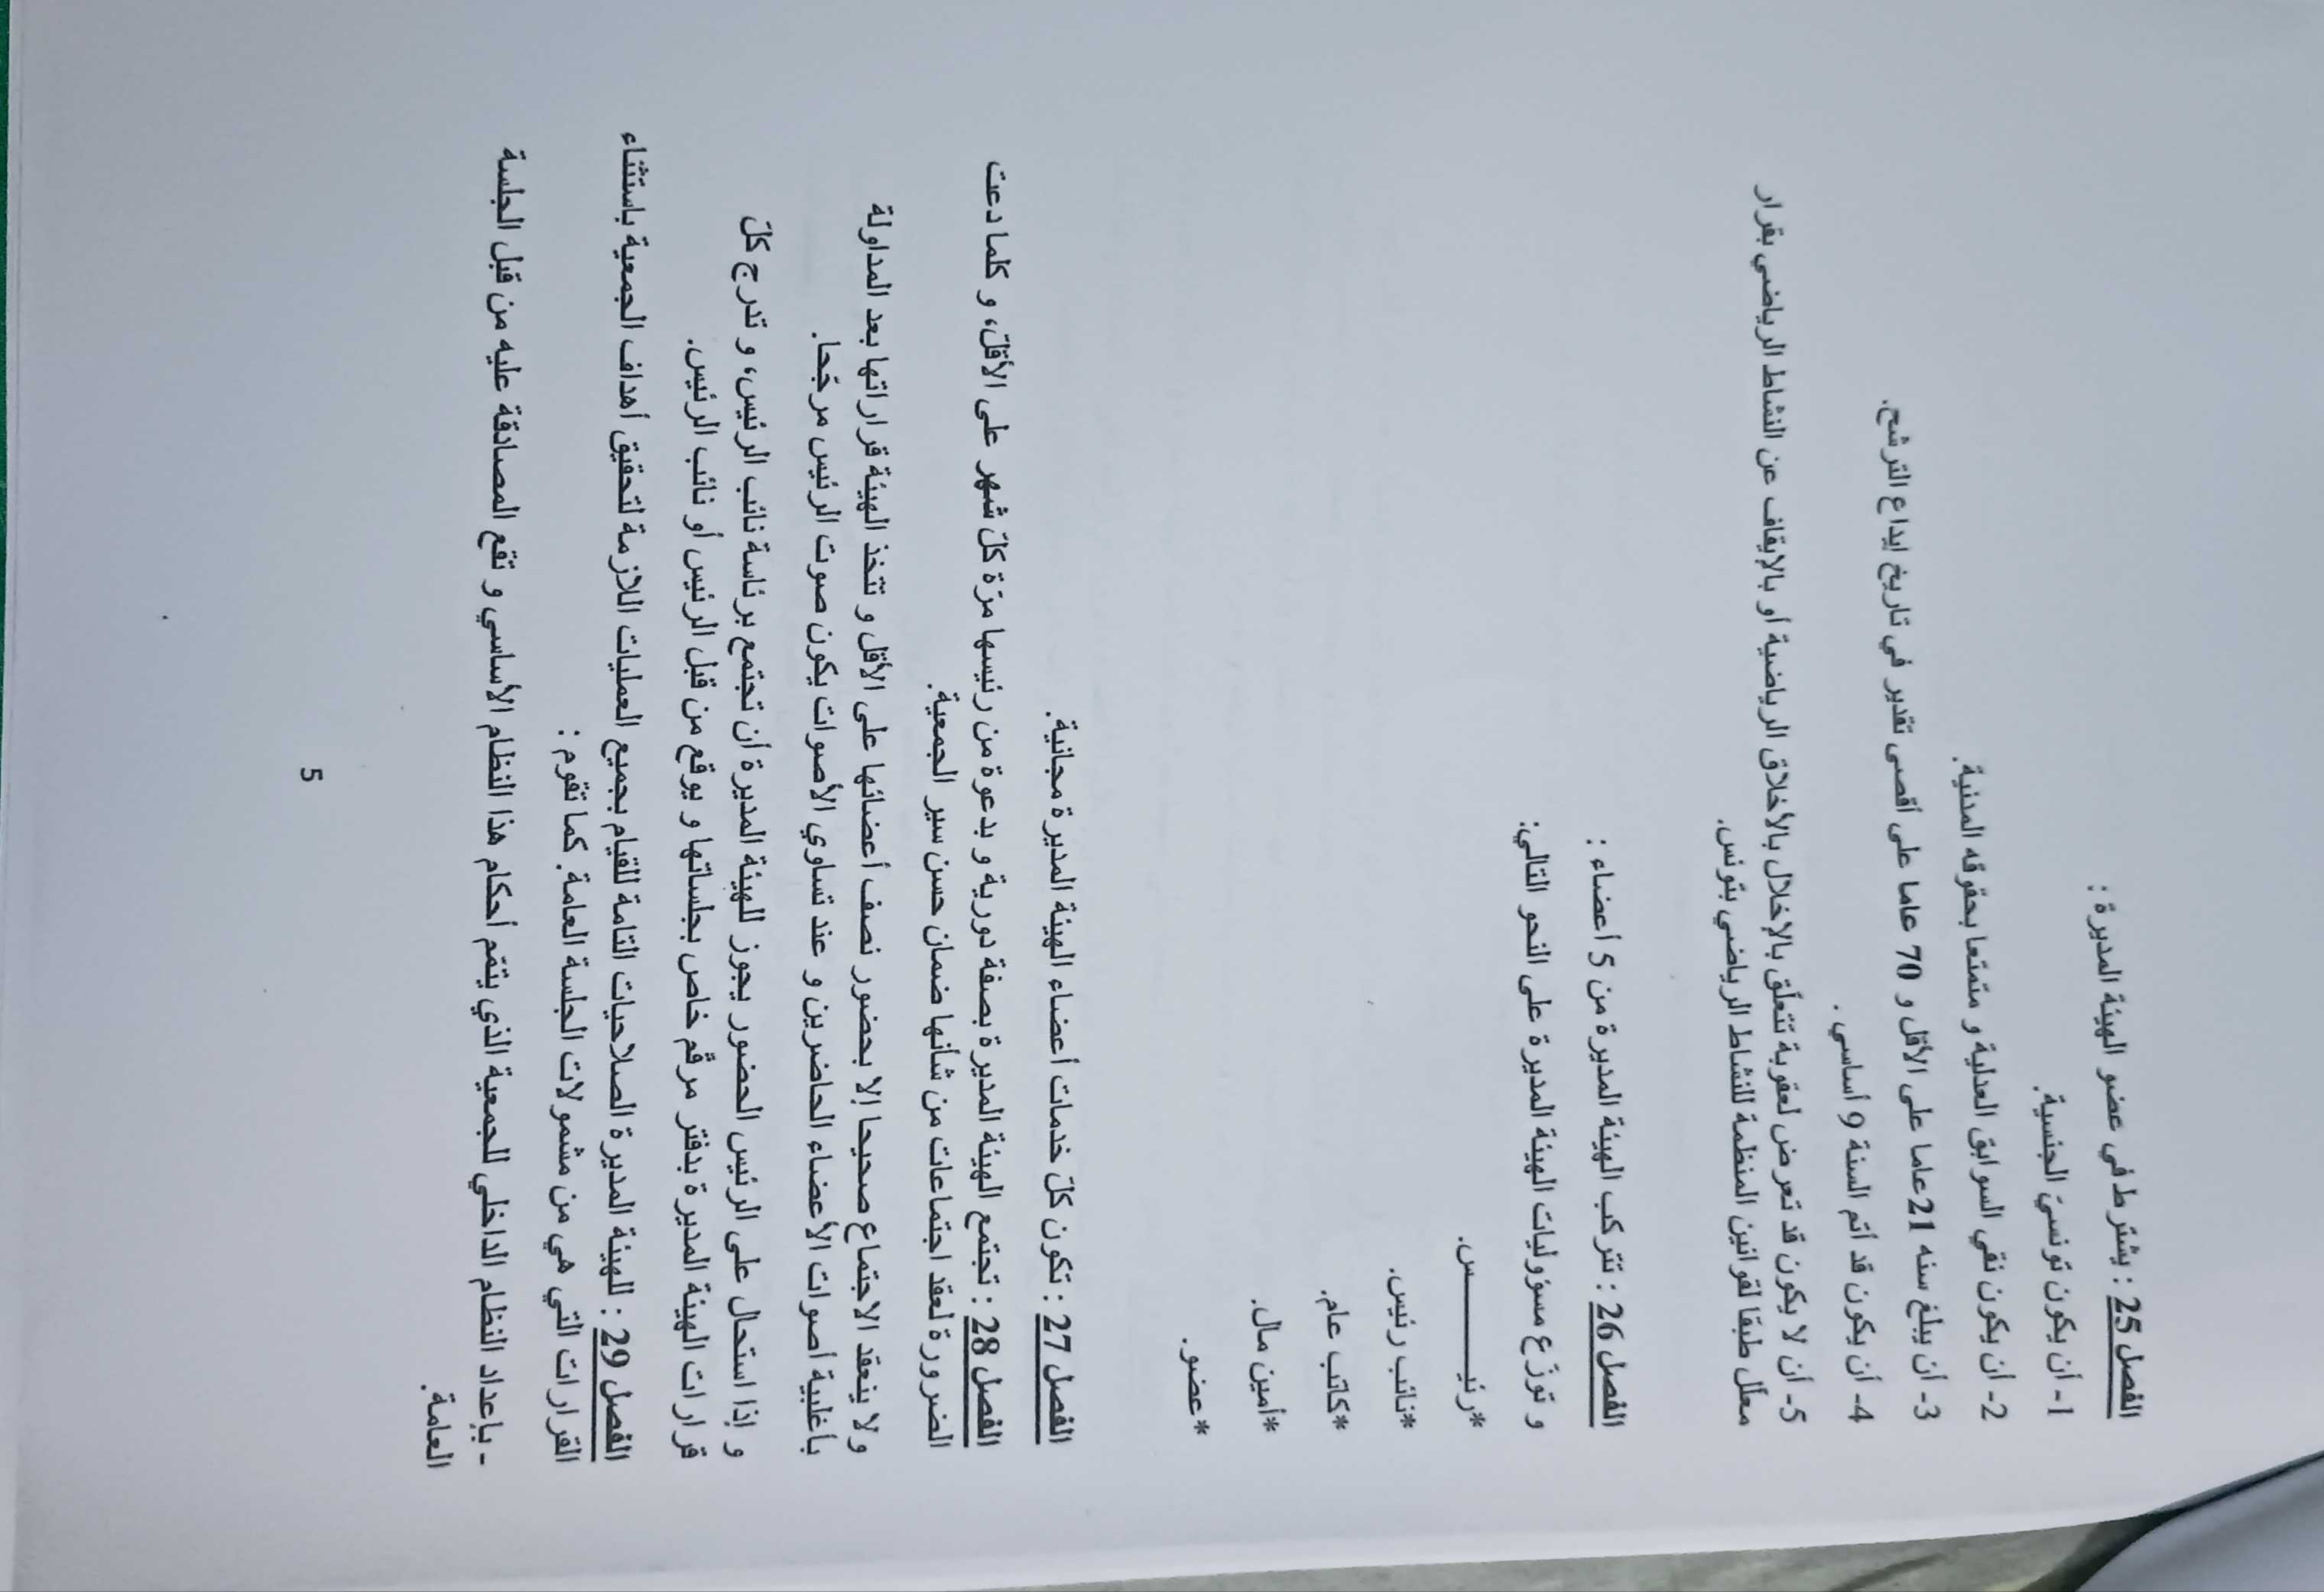 الفصل 25 : يشترط في عضو الهيئة المديرة :
1- أن يكون تونسيّ الجنسية.
2- أن يكون نقي السوابق العدلية و متمتعا بحقوقه المدنية.
3- أن يبلغ سنه 21عاما على الأقل و 70 عاما على أقصى تقدير في تاريخ إيداع الترشح.
4- أن يكون قد أتم السنة 9 أساسي .
5- أن لا يكون قد تعرض لعقوبة تتعلّق بالإخلال بالأخلاق الرياضية أو بالإيقاف عن النشاط الرياضي بقرار
معلّل طبقا لقوانين المنظمة للنشاط الرياضي بتونس.
الفصل 26 : تتركب الهيئة المديرة من 5 أعضاء :
و توزّع مسؤوليات الهيئة المديرة على النحو التالي:
*رئيــــــــس.
*نائب رئيس.
*كاتب عام.
*أمين مال.
*عضو.
الفصل 27 : تكون كلّ خدمات أعضاء الهيئة المديرة مجانية.
الفصل 28 : تجتمع الهيئة المديرة بصفة دورية و بدعوة من رئيسها مرّة كلّ شهر على الأقلّ، و كلما دعت
الضرورة لعقد اجتماعات من شأنها ضمان حسن سير الجمعية.
و لا ينعقد الاجتماع صحيحا إلا بحضور نصف أعضائها على الأقل و تتخذ الهيئة قراراتها بعد المداولة
بأغلبية أصوات الأعضاء الحاضرين و عند تساوي الأصوات يكون صوت الرئيس مرجّحا.
و إذا استحال على الرئيس الحضور يجوز للهيئة المديرة أن تجتمع برئاسة نائب الرئيس، و تدرج كلّ
قرارات الهيئة المديرة بدفتر مرقّم خاص بجلساتها و يوقع من قبل الرئيس أو نائب الرئيس.
الفصل 29 : للهيئة المديرة الصلاحيات التامة للقيام بجميع العمليات اللازمة لتحقيق أهداف الجمعية باستثناء
القرارات التي هي من مشمولات الجلسة العامة. كما تقوم :
- بإعداد النظام الداخلي للجمعية الذي يتمّم أحكام هذا النظام الأساسي و تقع المصادقة عليه من قبل الجلسة
العامة.
5